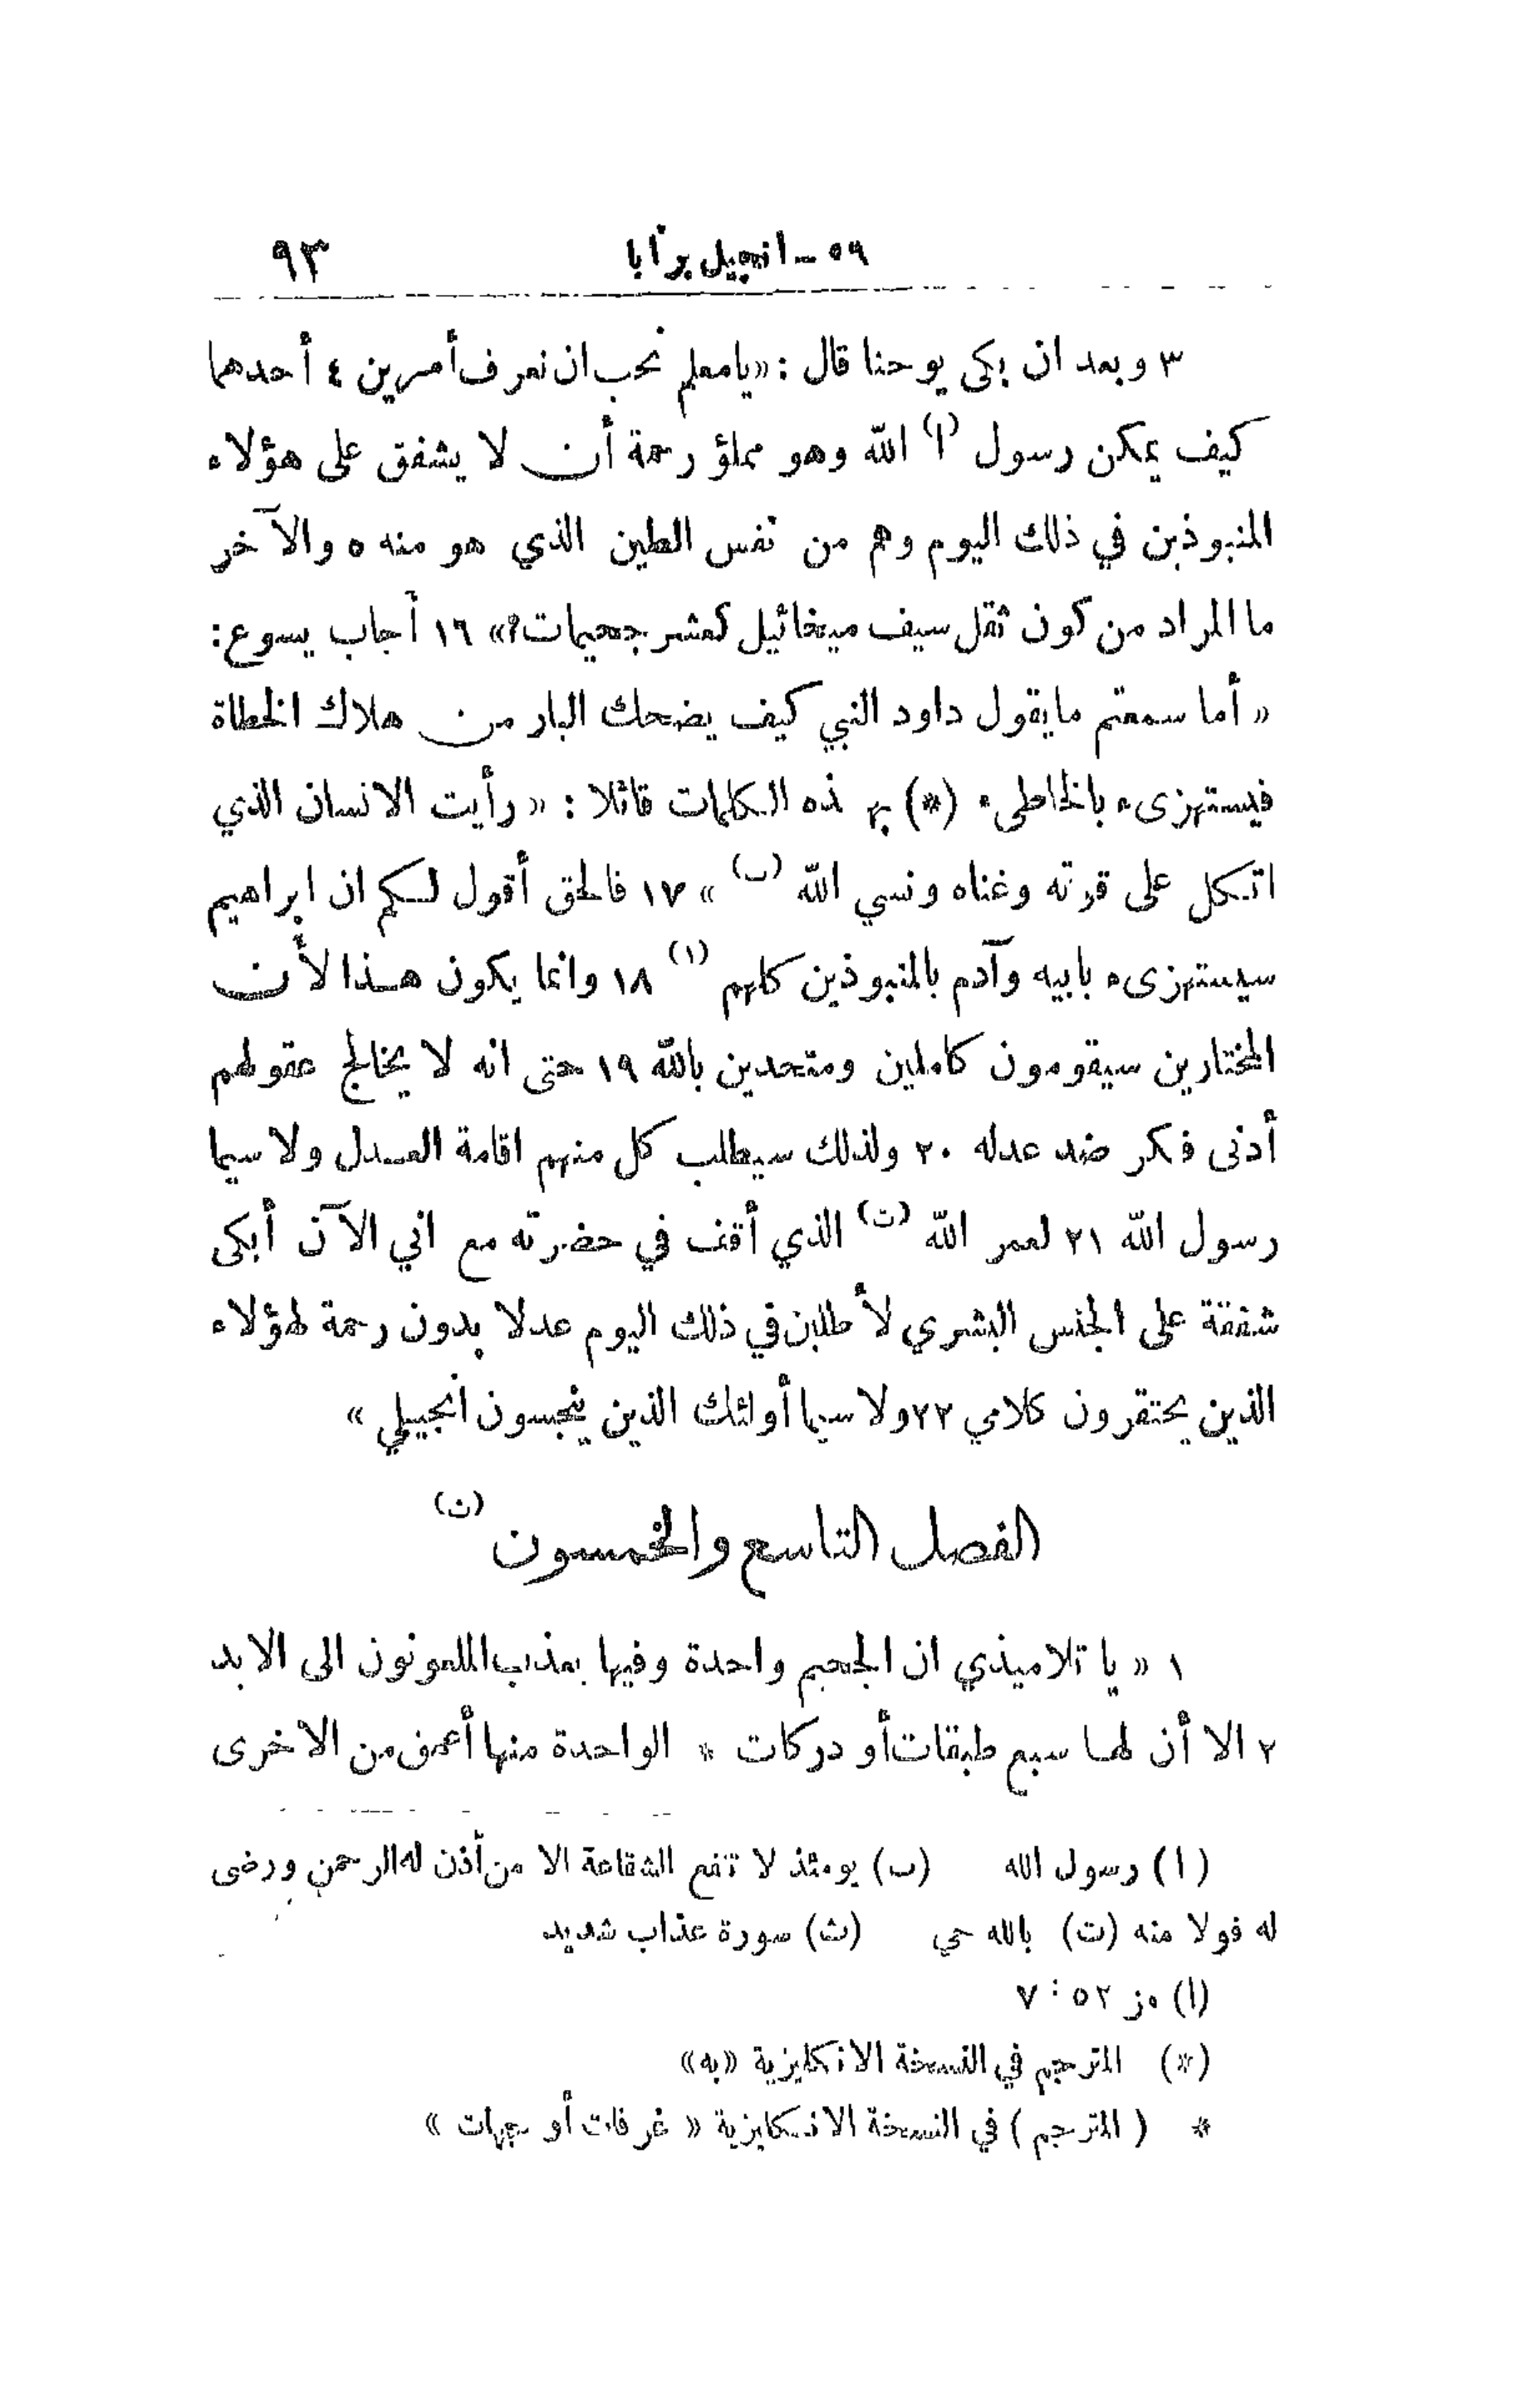 ٥٩ - انجيل برنابا ٩٣
٣ وبعد ان بكى يوحنا قال : «يامعلم نحب ان نعرف أمرين ٤ أحدهما
كيف يمكن رسول (ا) الله وهو مملؤ رحمة أن لا يشفق على هؤلاء
المنبوذين في ذلك اليوم وهم من نفس الطين الذي هو منه ٥ والآخر
ما المراد من كون ثقل سيف ميخائيل كعشر جحيمات؟» ١٦ أجاب يسوع:
« أما سمعتم مايقول داود النبي كيف يضحك البار من هلاك الخطاة
فيستهزىء بالخاطىء (*) بهذه الكلمات قائلا : « رأيت الانسان الذي
اتكل على قوته وغناه ونسي الله (ب) » ١٧ فالحق أقول لكم ان ابراهيم
سيستهزىء بابيه وآدم بالمنبوذين كلهم (١) ١٨ وانما يكون هذا لأن
المختارين سيقومون كاملين ومتحدين بالله ١٩ حتى انه لا يخالج عقولهم
أدنى فكر ضد عدله ٢٠ ولذلك سيطلب كل منهم اقامة العدل ولا سيما
رسول الله ٢١ لعمر الله (ت) الذي أقف في حضرته مع اني الآن أبكى
شفقة على الجنس البشري لأطلبن في ذلك اليوم عدلا بدون رحمة لهؤلاء
الذين يحتقرون كلامي ٢٢ ولا سيما أولئك الذين ينجسون أنجيلي »
الفصل التاسع والخمسون (ث)
١ « يا تلاميذي ان الجحيم واحدة وفيها يعذب الملعونون الى الابد
٢ الا أن لها سبع طبقات أو دركات * الواحدة منها أعمق من الاخرى
(ا) رسول الله (ب) يومئذ لا تنفع الشفاعة الا من أذن له الرحمن ورضى
له قولا منه (ت) بالله حي (ث) سورة عذاب شديد
(ا) مز ٥٢ : ٧
(*) المترجم في النسخة الانكليزية «به»
* (المترجم) في النسخة الانكليزية « غرفات أو جهات »